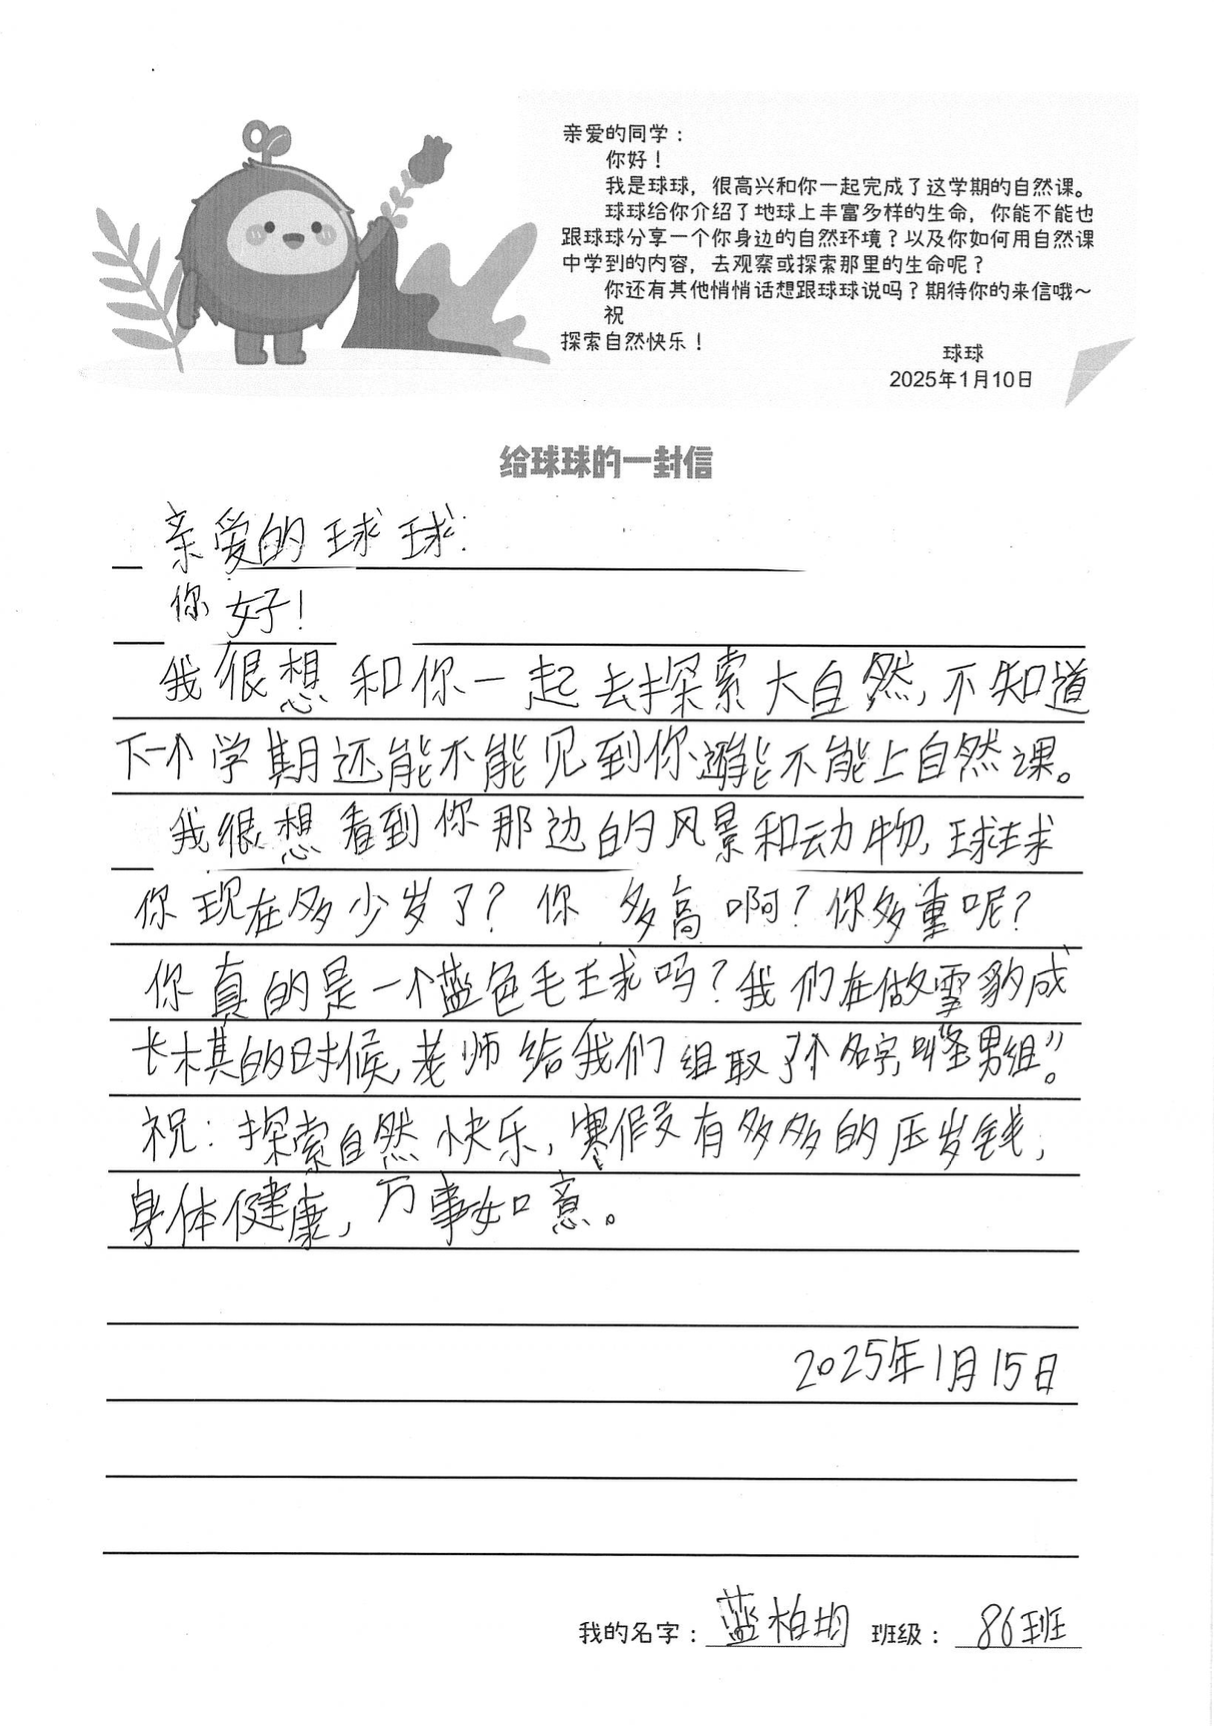 亲爱的同学：
你好！
我是球球，很高兴和你一起完成了这学期的自然课。
球球给你介绍了地球上丰富多样的生命，你能不能也
跟球球分享一个你身边的自然环境？以及你如何用自然课
中学到的内容，去观察或探索那里的生命呢？
你还有其他悄悄话想跟球球说吗？期待你的来信哦～
祝
探索自然快乐！
球球
2025年1月10日
给球球的一封信
亲爱的球球：
你好！
我很想和你一起去探索大自然，不知道
下一个学期还能不能见到你，能不能上自然课。
我很想看到你那边的风景和动物，球球
你现在多少岁了？你多高啊？你多重呢？
你真的是一个蓝色毛球吗？我们在做雪豹成
长棋的时候，老师给我们组取了个名字，叫“圣男组”。
祝：探索自然快乐，寒假有多多的压岁钱，
身体健康，万事如意。
2025年1月15日
我的名字：蓝柏均 班级：86班